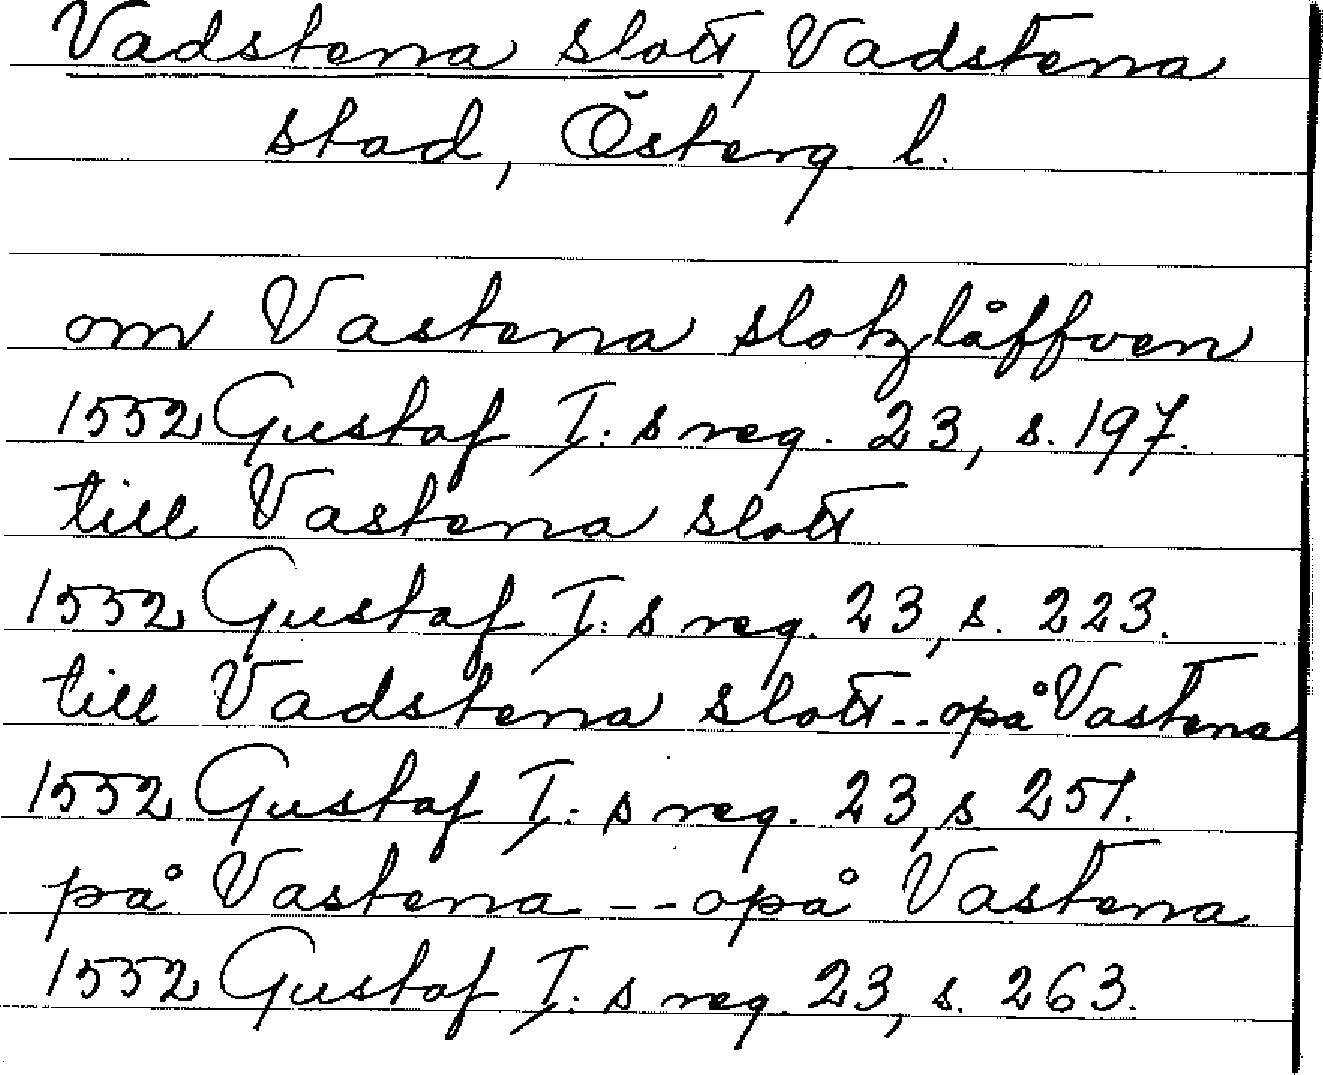 Vadstena slott, Vadstena
stad, Österg l.
om Vastena slotzlåffven
1552 Gustaf I: s reg. 23, s. 197.
till Vastena slott
1552 Gustaf I: s reg. 23, s. 223.
till Vadstena slott -- opå Vastena
1552 Gustaf I: s reg. 23, s 251.
på Vastena -- opå Vastena
1552 Gustaf I: s reg. 23, s. 263.